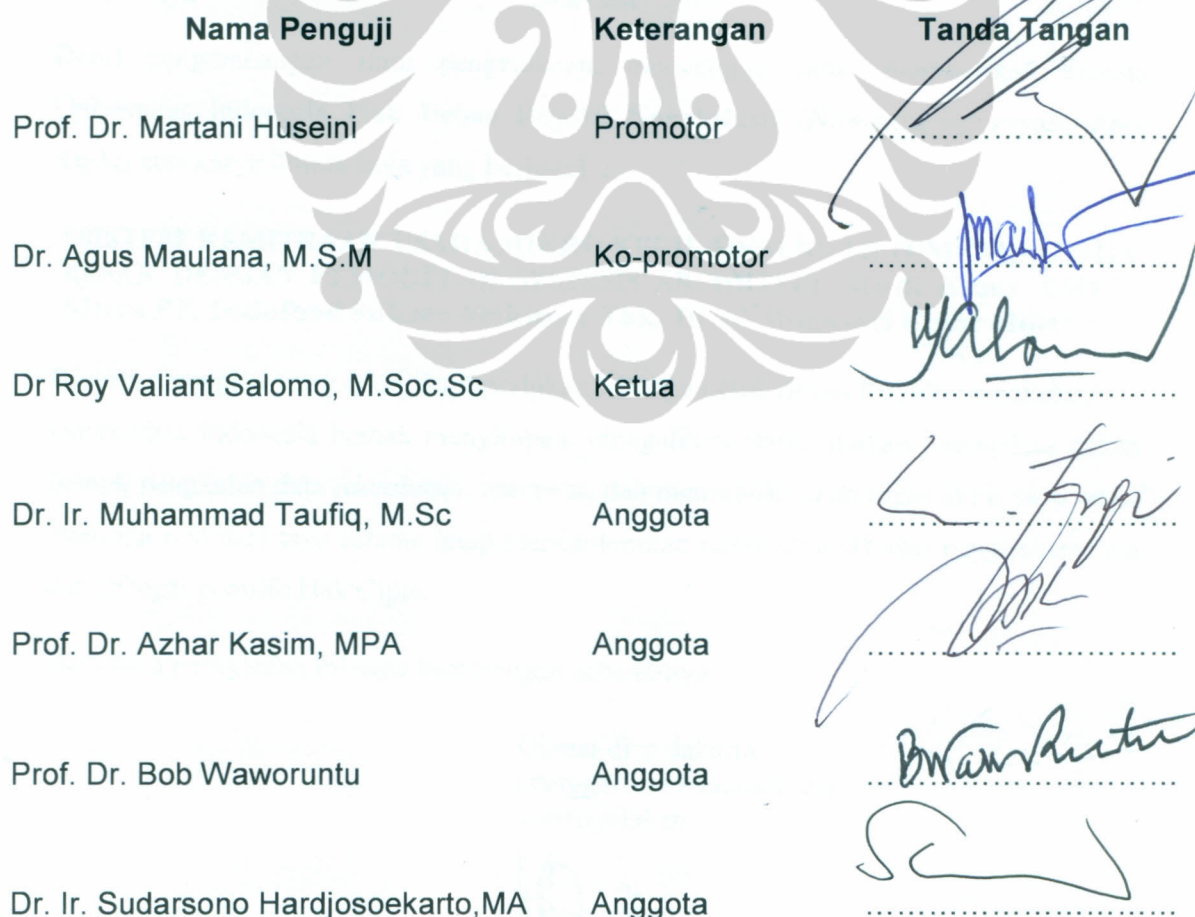 Nama Penguji Keterangan Tanda Tangan
Prof. Dr. Martani Huseini Promotor ........................
Dr. Agus Maulana, M.S.M Ko-promotor ........................
Dr Roy Valiant Salomo, M.Soc.Sc Ketua ........................
Dr. Ir. Muhammad Taufiq, M.Sc Anggota ........................
Prof. Dr. Azhar Kasim, MPA Anggota ........................
Prof. Dr. Bob Waworuntu Anggota ........................
Dr. Ir. Sudarsono Hardjosoekarto,MA Anggota ........................